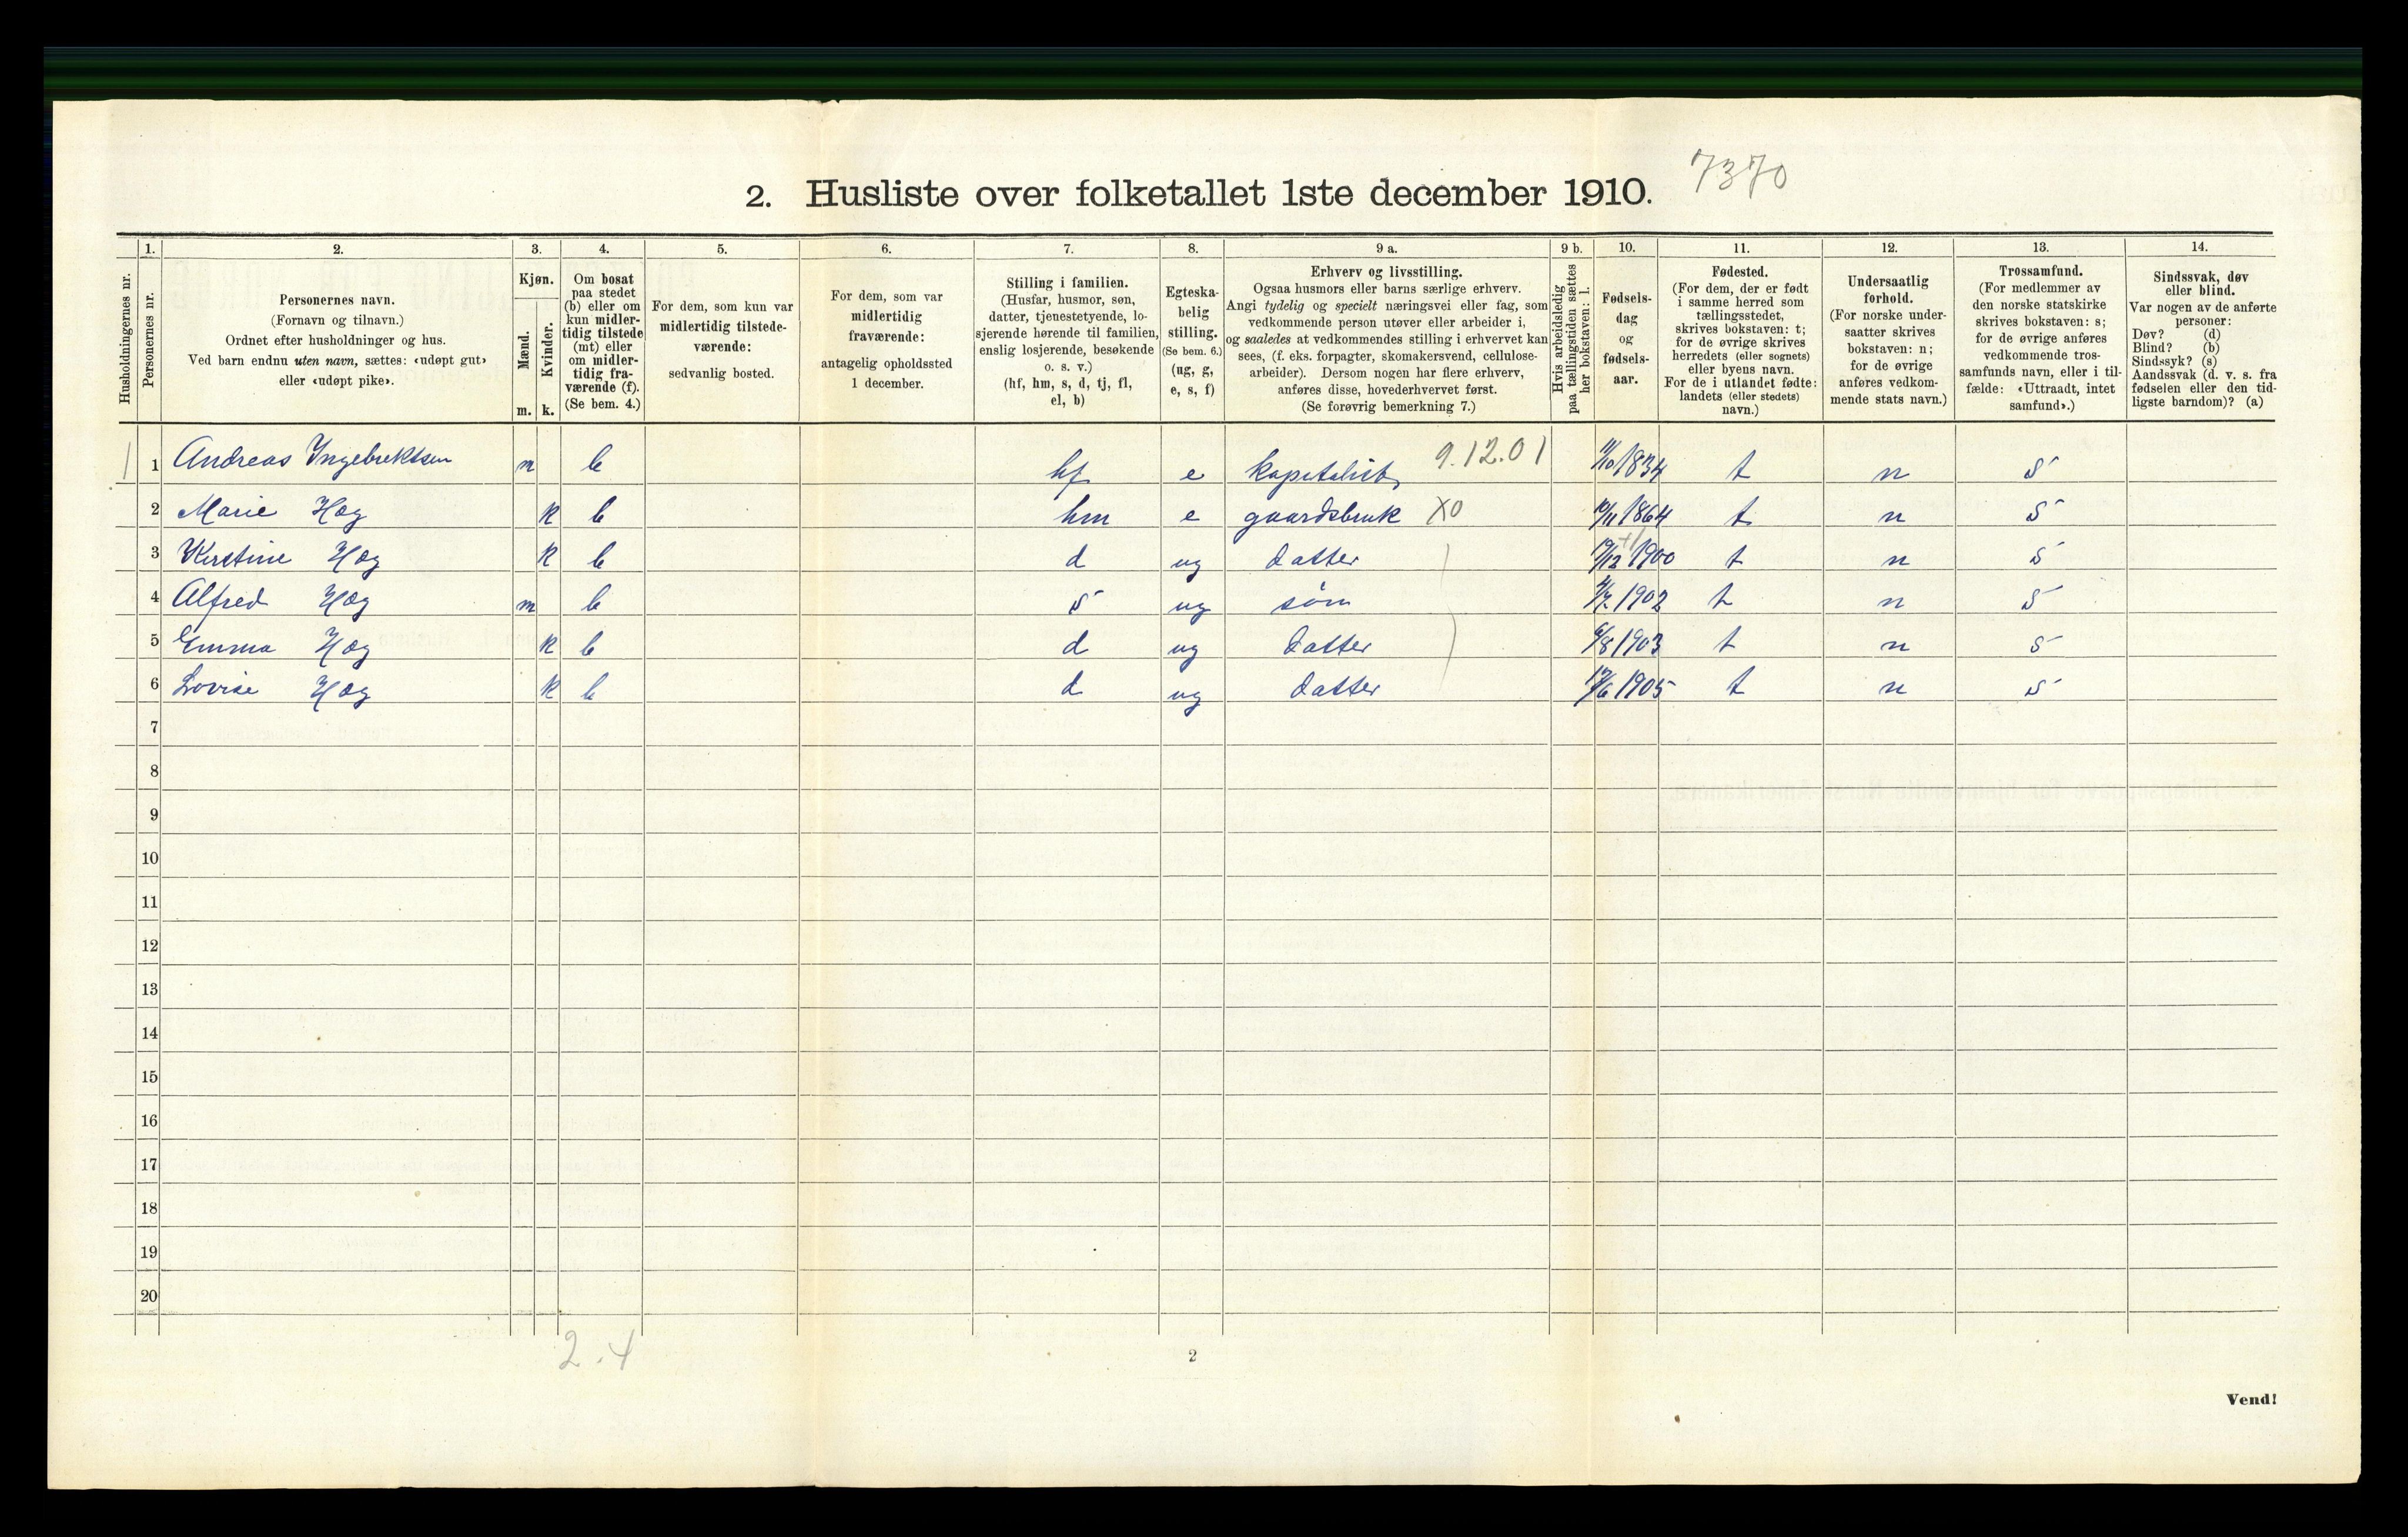 7370
2. Husliste over folketallet 1ste december 1910.
Husholdningernes nr.
1.
Personernes nr.
2.
Personernes navn.
(Fornavn og tilnavn.)
Ordnet efter husholdninger og hus.
Ved barn endnu uten navn, sættes: «udøpt gut»
eller «udøpt pike».
3.
Kjøn.
Mænd.
Kvinder.
m. k.
4.
Om bosat
paa stedet
(b) eller om
kun midler-
tidig tilstede
(mt) eller
om midler-
tidig fra-
værende (f).
(Se bem. 4.)
5.
For dem, som kun var
midlertidig tilstede-
værende:
sedvanlig bosted.
6.
For dem, som var
midlertidig
fraværende:
antagelig opholdssted
1 december.
7.
Stilling i familien.
(Husfar, husmor, søn,
datter, tjenestetyende, lo-
sjerende hørende til familien,
enslig losjerende, besøkende
o. s. v.)
(hf, hm, s, d, tj, fl,
el, b)
8.
Egteska-
belig
stilling.
(Se bem. 6.)
(ug, g,
e, s, f)
9 a.
Erhverv og livsstilling.
Ogsaa husmors eller barns særlige erhverv.
Angi tydelig og specielt næringsvei eller fag, som
vedkommende person utøver eller arbeider i,
og saaledes at vedkommendes stilling i erhvervet kan
sees, (f. eks. forpagter, skomakersvend, cellulose-
arbeider). Dersom nogen har flere erhverv,
anføres disse, hovederhvervet først.
(Se forøvrig bemerkning 7.)
9 b.
Hvis arbeidsledig
paa tællingstiden sættes
her bokstaven: l.
10.
Fødsels-
dag
og
fødsels-
aar.
11.
Fødested.
(For dem, der er født
i samme herred som
tællingsstedet,
skrives bokstaven: t;
for de øvrige skrives
herredets (eller sognets)
eller byens navn.
For de i utlandet fødte:
landets (eller stedets)
navn.)
12.
Undersaatlig
forhold.
(For norske under-
saatter skrives
bokstaven: n;
for de øvrige
anføres vedkom-
mende stats navn.)
13.
Trossamfund.
(For medlemmer av
den norske statskirke
skrives bokstaven: s;
for de øvrige anføres
vedkommende tros-
samfunds navn, eller i til-
fælde: «Uttraadt, intet
samfund».)
14.
Sindssvak, døv
eller blind.
Var nogen av de anførte
personer:
Døv? (d)
Blind? (b)
Sindssyk? (s)
Aandssvak (d. v. s. fra
fødselen eller den tid-
ligste barndom)? (a)
1 1 Andreas Ingebrektsen m b hf e kapitalist 9.12.01 11/10 1834 t n s
2 Marie Hæg k b hm e gaardsbruk X0 10/11 1864 t n s
3 Kirstine Hæg k b d ug datter 19/12 1900 t n s
4 Alfred Hæg m b s ug søn 4/7 1902 t n s
5 Emma Hæg k b d ug datter 6/8 1903 t n s
6 Lovise Hæg k b d ug datter 1905 t n s
7
8
9
10
11
12
13
14
15
16
17
18
19
20
2.4
2
Vend!